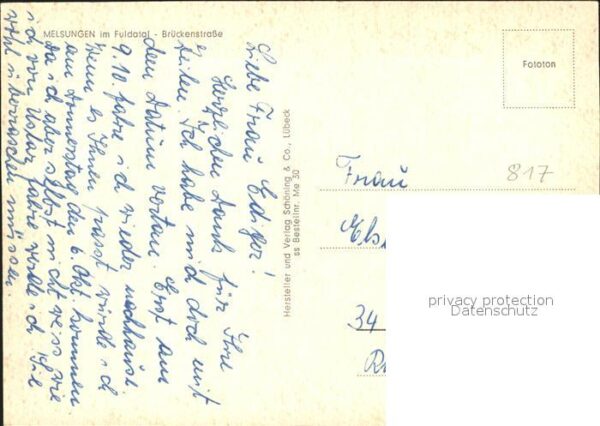 MELSUNGEN im Fuldatal - Brückenstraße
Liebe Frau Ediger!
Herzlichen Dank für Ihre
Zeilen. Ich habe mich doch mit
dem Datum vertan. Erst am
9.10 fahre ich wieder nachhause.
Wenn es Ihnen passt würde ich
am Donnerstag den 6. Okt. kommen
da ich aber selbst nicht weiss wie
ich von Uslar fahre werde ich Sie
wohl überraschen müssen.
Hersteller und Verlag Schöning & Co., Lübeck
ss Bestellnr. Me 30
Fototon
817
Frau
Els
34
privacy protection
Datenschutz